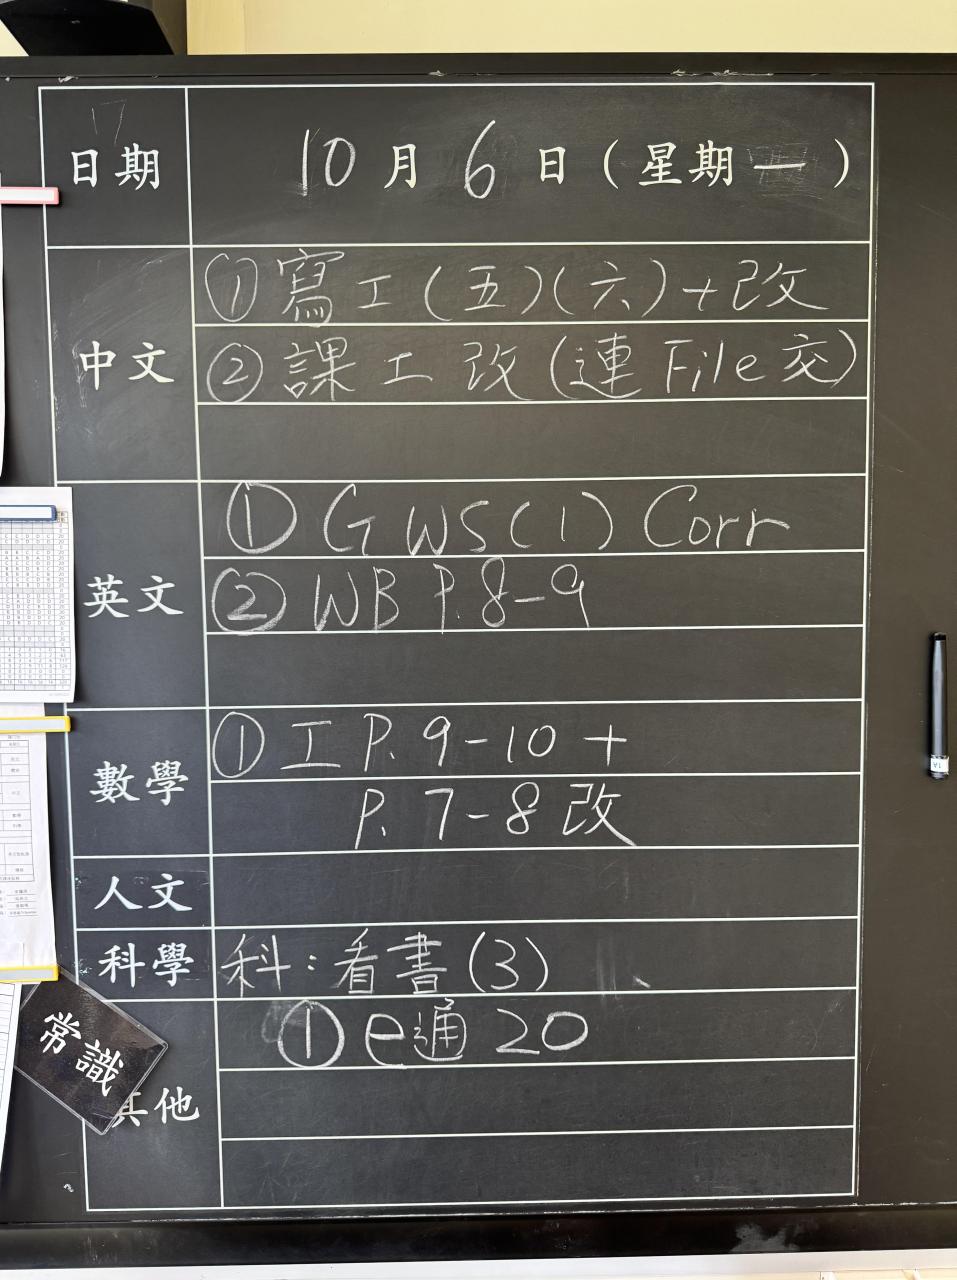 日期 10月6日(星期一)
中文
① 寫工(五)(六)+改
② 課工改(連File交)
英文
① GWS(1) Corr
② WB P.8-9
數學
① 工 P.9-10 +
P.7-8 改
人文
科學 科:看書(3)
常識
其他
① e通 20